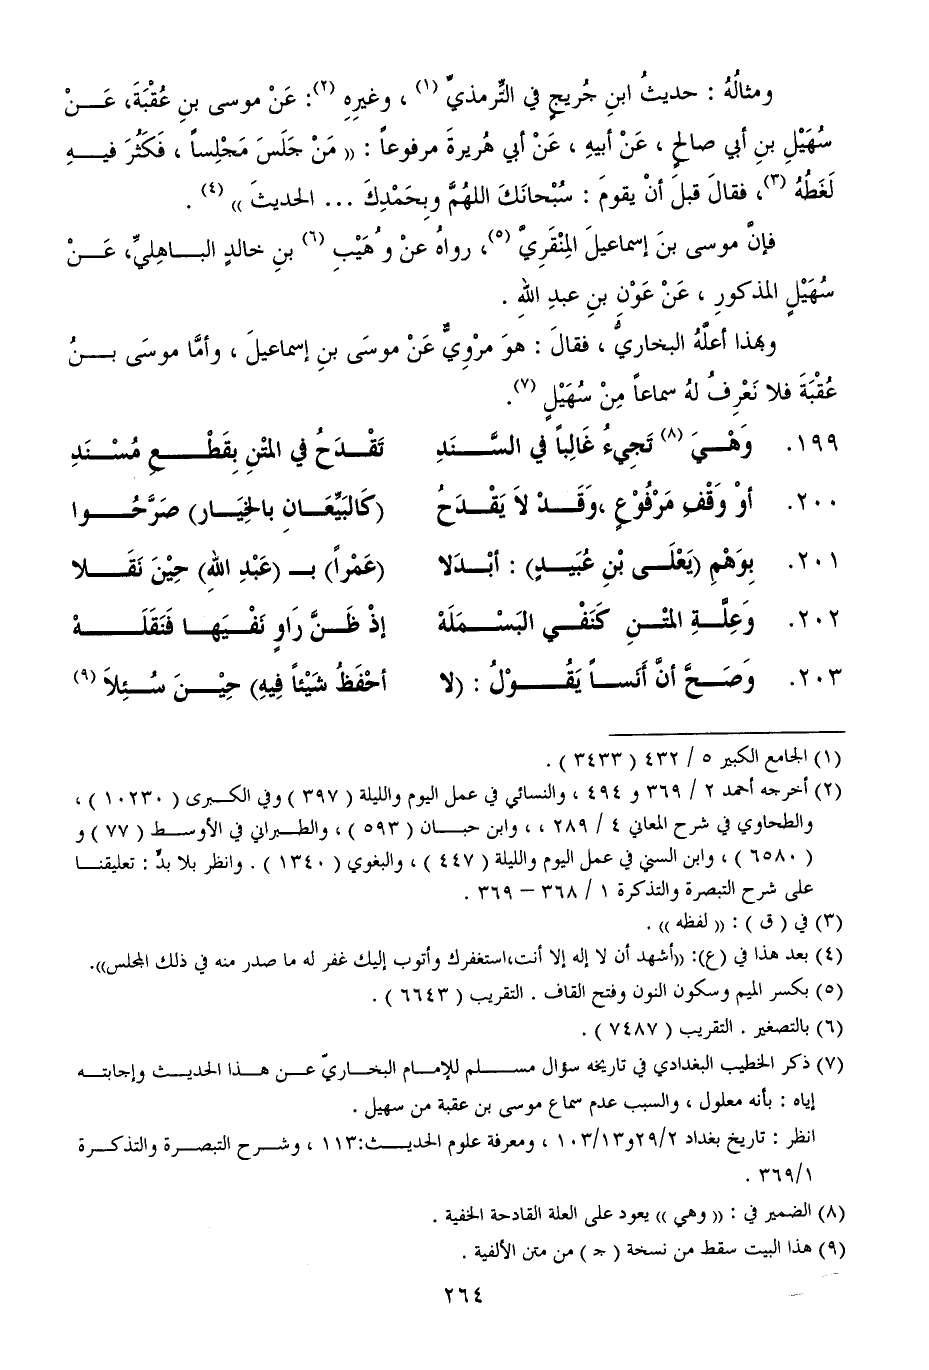 ومثالُهُ : حديثُ ابنِ جُريجٍ في التِّرمذيِّ (١) ، وغيرِهِ (٢): عَنْ موسى بنِ عُقْبَةَ، عَنْ
سُهَيْلِ بنِ أبي صالحٍ ، عَنْ أبيهِ ، عَنْ أبي هُريرةَ مرفوعاً : (( مَنْ جَلَسَ مَجْلِساً ، فَكَثُرَ فيهِ
لَغَطُهُ (٣)، فقالَ قبلَ أنْ يقومَ : سُبْحانَكَ اللهُمَّ وبِحَمْدِكَ ... الحديثَ )) (٤) .
فإنَّ موسى بنَ إسماعيلَ المِنْقَرِيَّ (٥)، رواهُ عنْ وُهَيْبِ (٦) بنِ خالدٍ الباهِليِّ، عَنْ
سُهَيْلٍ المذكورِ ، عَنْ عَوْنِ بنِ عبدِ اللهِ .
وبهذا أعلَّهُ البخاريُّ ، فقالَ : هوَ مرْوِيٌّ عَنْ موسَى بنِ إسماعيلَ ، وأمَّا موسَى بنُ
عُقْبَةَ فلا نَعْرِفُ لهُ سماعاً مِنْ سُهَيْلٍ (٧).
١٩٩. وَهْيَ (٨) تَجِيءُ غَالِباً في السَّنَدِ تَقْدَحُ في المتْنِ بِقَطْعِ مُسْنَدِ
٢٠٠. أوْ وَقْفِ مَرْفُوْعٍ ،وَقَدْ لاَ يَقْدَحُ (كَالبَيِّعَانِ بالخِيَار) صَرَّحُوا
٢٠١. بِوَهْمِ (يَعْلَى بْنِ عُبَيدٍ) : أبْدَلا (عَمْراً) بـ (عَبْدِ اللهِ) حِيْنَ نَقَلا
٢٠٢. وَعِلَّةِ المتْنِ كَنَفْي البَسْمَلَهْ إذْ ظَنَّ رَاوٍ نَفْيَهَا فَنَقَلَهْ
٢٠٣. وَصَحَّ أنَّ أَنَساً يَقُوْلُ : (لا أحْفَظُ شَيْئاً فِيهِ) حِيْنَ سُئِلاَ (٩)
(١) الجامع الكبير ٥ / ٤٣٢ ( ٣٤٣٣ ) .
(٢) أخرجه أحمد ٢ / ٣٦٩ و ٤٩٤ ، والنسائي في عمل اليوم والليلة ( ٣٩٧ ) وفي الكبرى ( ١٠٢٣٠ ) ،
والطحاوي في شرح المعاني ٤ / ٢٨٩ ، ، وابن حبان ( ٥٩٣ ) ، والطبراني في الأوسط ( ٧٧ ) و
( ٦٥٨٠ ) ، وابن السني في عمل اليوم والليلة ( ٤٤٧ ) ، والبغوي ( ١٣٤٠ ) . وانظر بلا بدٍّ : تعليقنا
على شرح التبصرة والتذكرة ١ / ٣٦٨ – ٣٦٩ .
(٣) في ( ق ) : (( لفظه )) .
(٤) بعد هذا في (ع): ((أشهد أن لا إله إلا أنت،استغفرك وأتوب إليك غفر له ما صدر منه في ذلك المجلس)).
(٥) بكسر الميم وسكون النون وفتح القاف . التقريب ( ٦٦٤٣ ) .
(٦) بالتصغير . التقريب ( ٧٤٨٧ ) .
(٧) ذكر الخطيب البغدادي في تاريخه سؤال مسلم للإمام البخاريّ عن هذا الحديث وإجابته
إياه : بأنه معلول ، والسبب عدم سماع موسى بن عقبة من سهيل .
انظر : تاريخ بغداد ٢٩/٢و١٠٣/١٣ ، ومعرفة علوم الحديث:١١٣ ، وشرح التبصرة والتذكرة
٣٦٩/١ .
(٨) الضمير في : (( وهي )) يعود على العلة القادحة الخفية .
(٩) هذا البيت سقط من نسخة ( جـ ) من متن الألفية .
٢٦٤